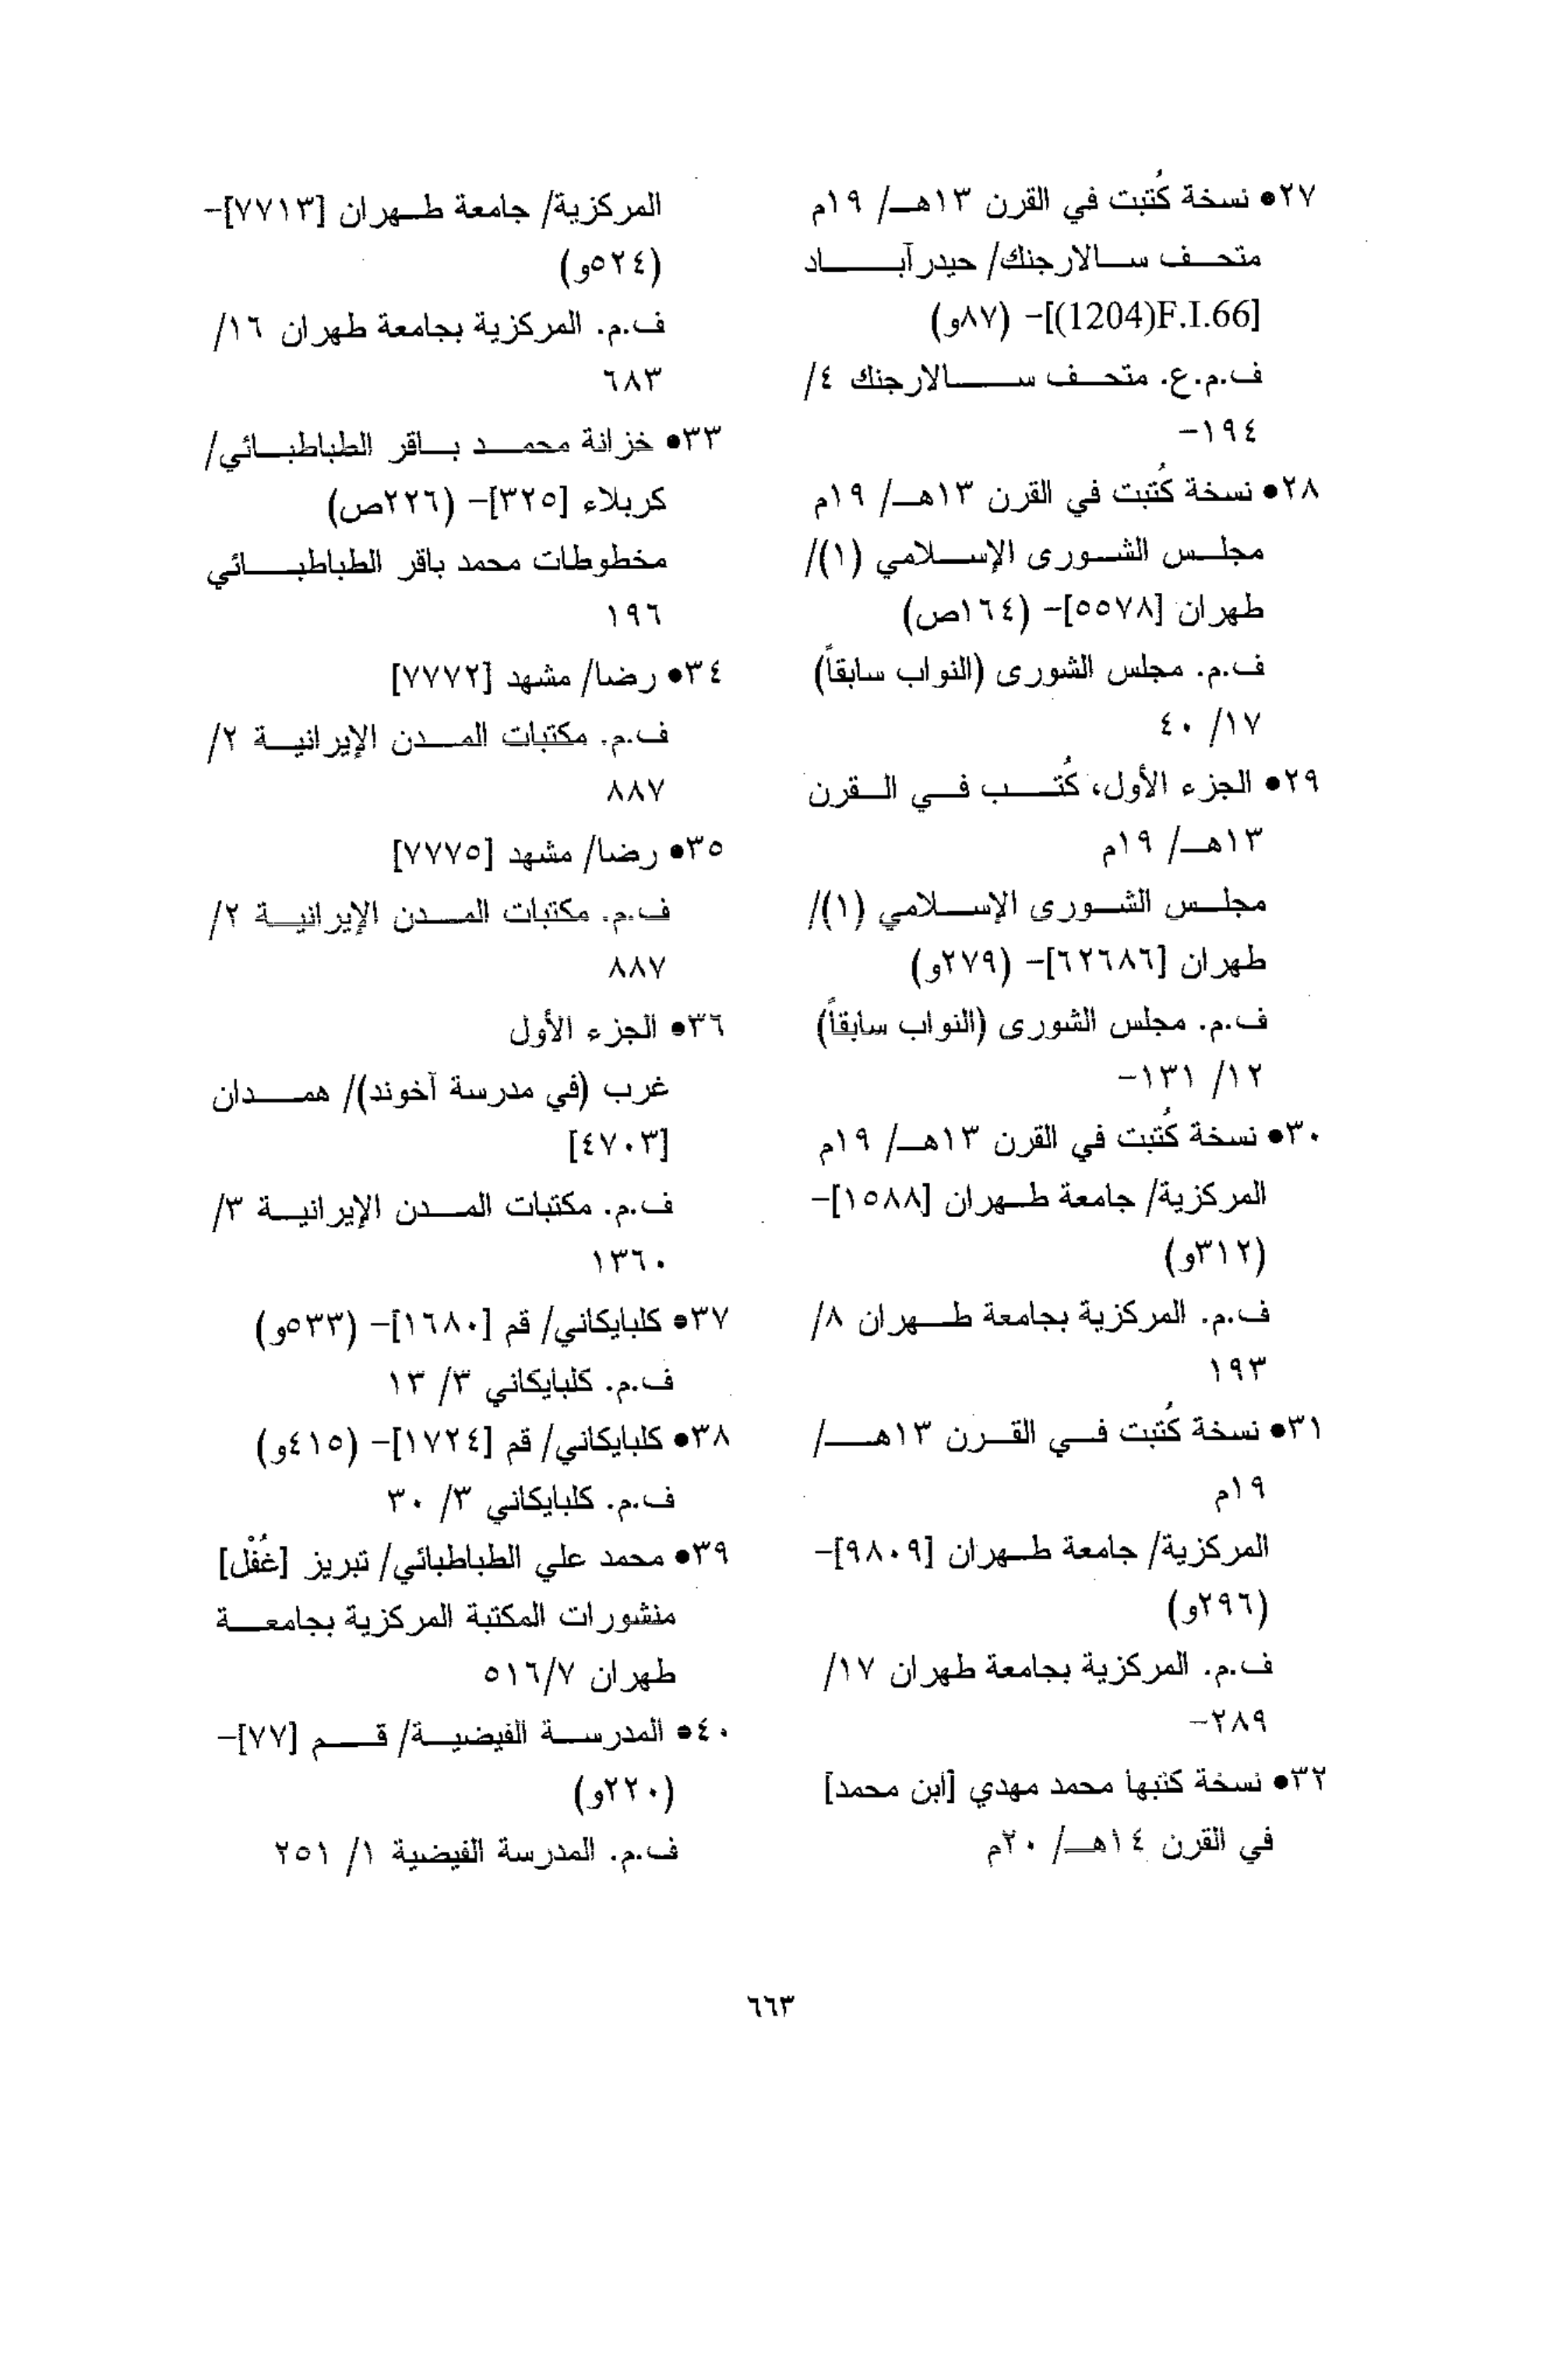 ٢٧● نسخة كُتبت في القرن ١٣هـ/ ١٩م
متحف سالارجنك/ حيدرآباد
[F.I.66(1204)]- (٨٧و)
ف.م.ع. متحف سالارجنك ٤/
١٩٤-
٢٨● نسخة كُتبت في القرن ١٣هـ/ ١٩م
مجلس الشورى الإسلامي (١)/
طهران [٥٥٧٨]- (١٦٤ص)
ف.م. مجلس الشورى (النواب سابقاً)
١٧/ ٤٠
٢٩● الجزء الأول، كُتب في القرن
١٣هـ/ ١٩م
مجلس الشورى الإسلامي (١)/
طهران [٦٢٦٨٦]- (٢٧٩و)
ف.م. مجلس الشورى (النواب سابقاً)
١٢/ ١٣١-
٣٠● نسخة كُتبت في القرن ١٣هـ/ ١٩م
المركزية/ جامعة طهران [١٥٨٨]-
(٣١٢و)
ف.م. المركزية بجامعة طهران ٨/
١٩٣
٣١● نسخة كُتبت في القرن ١٣هـ/
١٩م
المركزية/ جامعة طهران [٩٨٠٩]-
(٢٩٦و)
ف.م. المركزية بجامعة طهران ١٧/
٢٨٩-
٣٢● نسخة كتبها محمد مهدي [ابن محمد]
في القرن ١٤هـ/ ٢٠م
المركزية/ جامعة طهران [٧٧١٣]-
(٥٢٤و)
ف.م. المركزية بجامعة طهران ١٦/
٦٨٣
٣٣● خزانة محمد باقر الطباطبائي/
كربلاء [٣٢٥]- (٢٢٦ص)
مخطوطات محمد باقر الطباطبائي
١٩٦
٣٤● رضا/ مشهد [٧٧٧٢]
ف.م. مكتبات المدن الإيرانية ٢/
٨٨٧
٣٥● رضا/ مشهد [٧٧٧٥]
ف.م. مكتبات المدن الإيرانية ٢/
٨٨٧
٣٦● الجزء الأول
غرب (في مدرسة آخوند)/ همدان
[٤٧٠٣]
ف.م. مكتبات المدن الإيرانية ٣/
١٣٦٠
٣٧● كلبايكاني/ قم [١٦٨٠]- (٥٣٣و)
ف.م. كلبايكاني ٣/ ١٣
٣٨● كلبايكاني/ قم [١٧٢٤]- (٤١٥و)
ف.م. كلبايكاني ٣/ ٣٠
٣٩● محمد علي الطباطبائي/ تبريز [غُفْل]
منشورات المكتبة المركزية بجامعة
طهران ٥١٦/٧
٤٠● المدرسة الفيضية/ قم [٧٧]-
(٢٢٠و)
ف.م. المدرسة الفيضية ١/ ٢٥١
٦٦٣